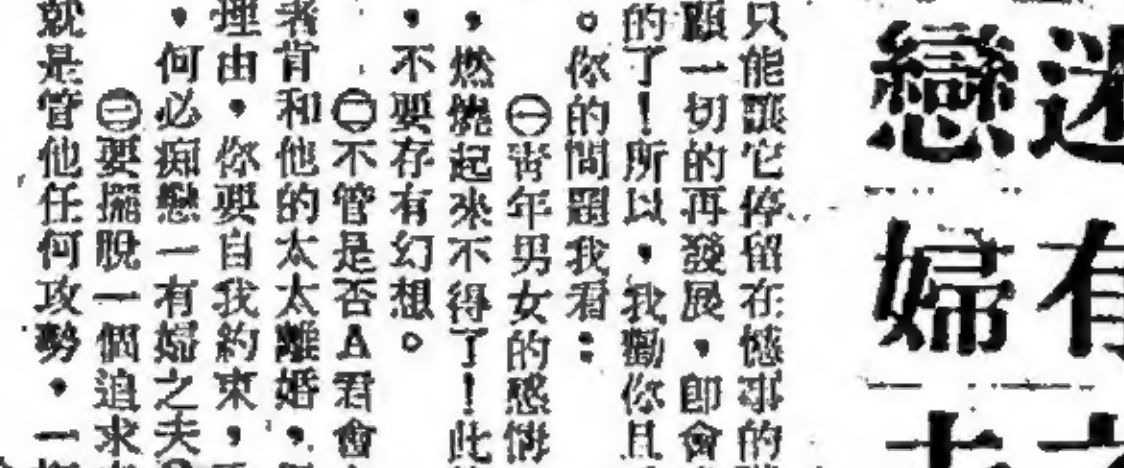 迷戀
有婦
只能讓它停留在憾事的
顧一切的再發展，即會
的了！所以，我勸你且
。你的問題我看：
㊀青年男女的感情
，燃燒起來不得了！此
，不要存有幻想。
㊁不管是否A君會
者肯和他的太太離婚，
理由，你要自我約束，
，何必痴戀一有婦之夫
㊂要擺脫一個追求
就是管他任何攻勢，一